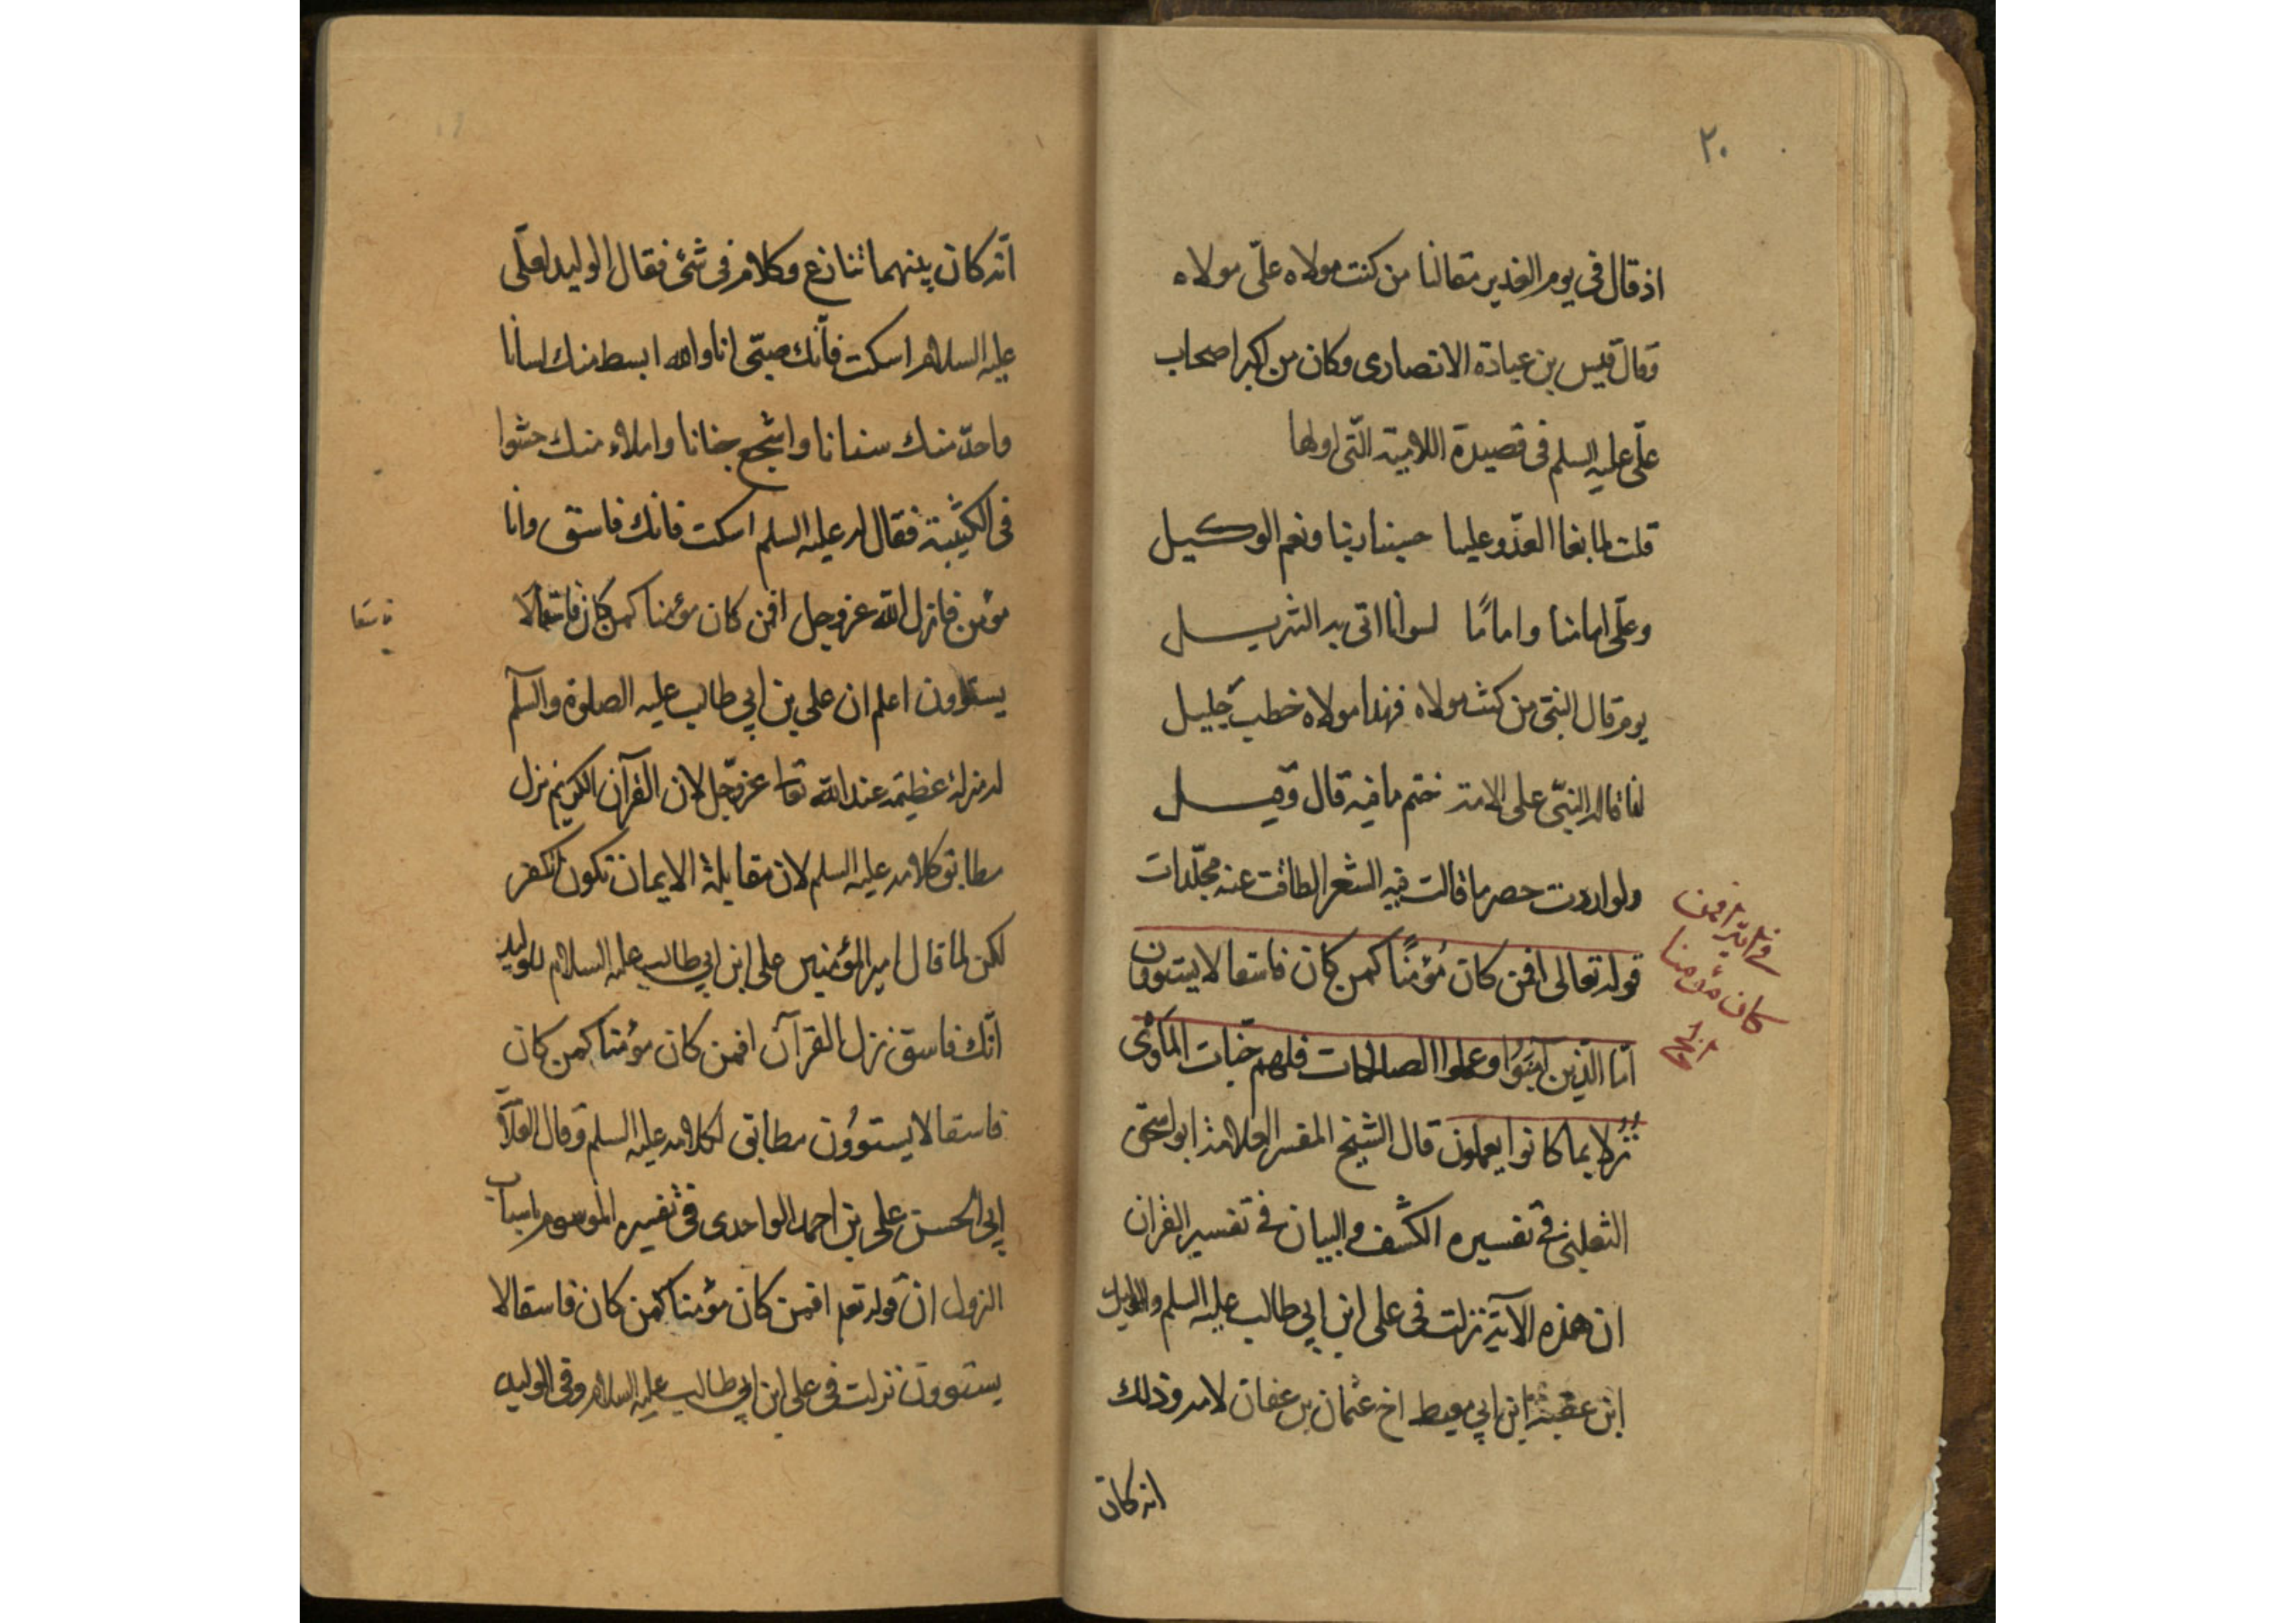 ٢٠
اذ قال فى يوم الغدير معالنا من كنت مولاه علىّ مولاه
وقال قيس بن عبادة الانصارى وكان من اكبر اصحاب
علىّ عليه السلم فى قصيدة اللامية الّتى اولها
قلت لما بغا العدّو علينا حسبنا ربنا ونعم الوكيل
وعلىّ امامنا وامامًا لسوانا اتى به التنزيل
يوم قال النبىّ من كنت مولاه فهذا مولاه خطب جليل
انما قاله النبىّ على الامة ختم ما فيه قال وقيل
ولو اردت حصر ما قالت فيه الشعرا لطاقت عنه مجلّدات
قوله تعالى افمن كان مُؤمنًا كمن كان فاسقا لا يستوون
امّا الّذين آمَنُوا وعملوا الصالحات فلهم جنّات المَأوى
نُزُلا بما كانوا يعملون قال الشيخ المفسر العلامة ابو اسحق
الثعلبى فى تفسيره الكشف والبيان فى تفسير القران
ان هذه الآية نزلت فى على ابن ابي طالب عليه السلم والوليد
ابن عقبة ابن ابي معيط اخ عثمان بن عفان لامه وذلك
انه كان
فى اية افمن
كان مؤمنا
الخ
انّه كان بينهما تنازع وكلام فى شئ فقال الوليد لعلّى
عليه السلام اسكت فانّك صبّى انا والله ابسط منك لسانا
واحدّ منك سنانا واشجع جنانا واملاء منك حشوا
فى الكتيبة فقال له عليه السلم اسكت فانك فاسق وانا
مؤمن فانزل الله عز وجل افمن كان مؤمنا كمن كان فاسقا لا
فاسقا
يستوون اعلم ان علي بن ابي طالب عليه الصلوة والسلم
له منزلة عظيمة عند الله تعا عزّ وجّل لان القرآن الكريم نزل
مطابق كلامه عليه السلم لان مقابلة الايمان تكون الكفر
لكن لما قال امير المؤمنين على ابن ابي طالب عليه السلام للوليد
انّك فاسق نزل القرآن افمن كان مؤمنا كمن كان
فاسقا لا يستوُون مطابق لكلامه عليه السلم وقال العلامة
ابي الحسن علي بن احمد الواحدى فى تفسيره الموسوم باسباب
النزول ان قوله تعم افمن كان مؤمنا كمن كان فاسقا لا
يستوون نزلت فى على ابن ابي طالب عليه السلام وفى الوليد